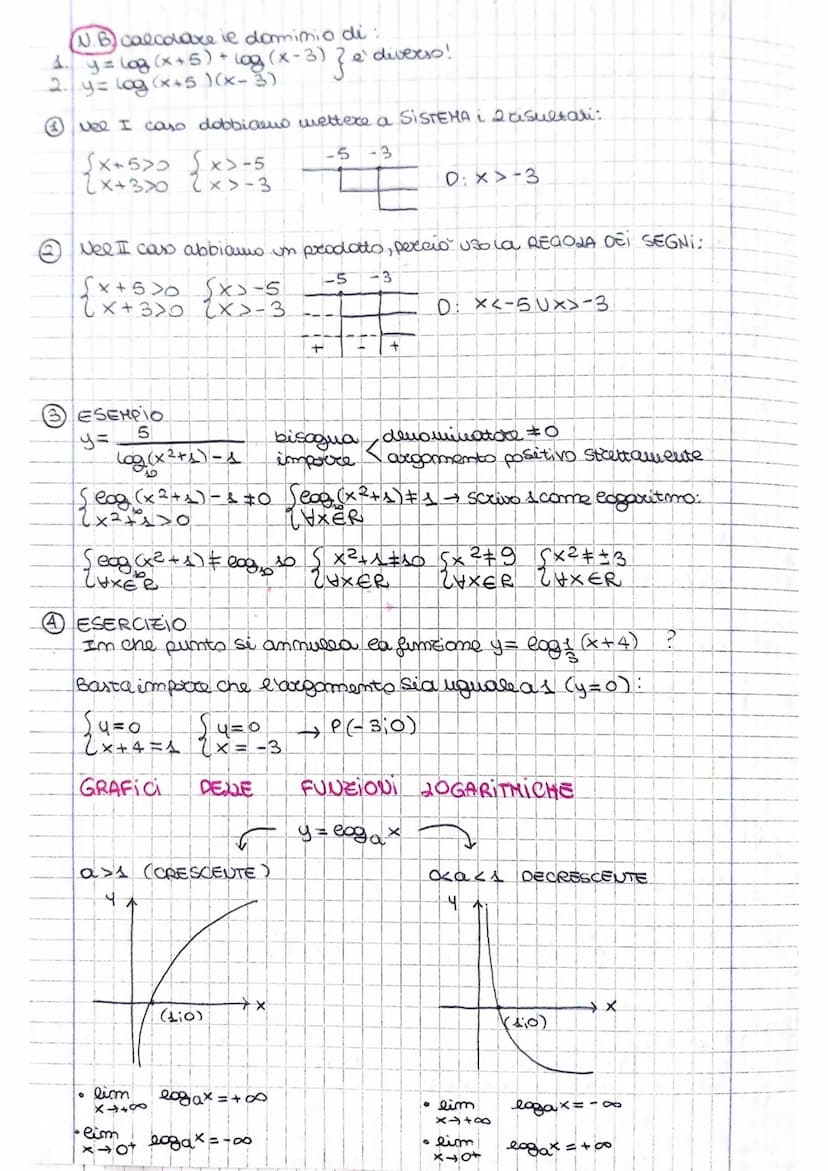 N.B. calcolare il dominio di:
1. y = log(x+5) + log(x-3) } è diverso!
2. y = log(x+5)(x-3)
① Nel I caso dobbiamo mettere a SISTEMA i 2 risultati:
{x+5>0 {x>-5 -5 -3
{x+3>0 {x>-3 D: x>-3
② Nel II caso abbiamo un prodotto, perciò uso la REGOLA DEI SEGNI:
{x+5>0 {x>-5 -5 -3
{x+3>0 {x>-3 D: x<-5 U x>-3
+ - +
③ ESEMPIO
y = 5 / log₁₀(x²+1)-1 bisogna imporre < denominatore ≠0
argomento positivo strettamente
{log₁₀(x²+1)-1≠0 {log₁₀(x²+1)≠1 → scrivo 1 come logaritmo:
{x²+1>0 {∀x∈R
{log₁₀(x²+1)≠log₁₀10 {x²+1≠10 {x²≠9 {x²≠±3
{∀x∈R {∀x∈R {∀x∈R {∀x∈R
④ ESERCIZIO
In che punto si annulla la funzione y = log 1/3 (x+4) ?
Basta imporre che l'argomento sia uguale a 1 (y=0):
{y=0 {y=0 → P(-3;0)
{x+4=1 {x=-3
GRAFICI DELLE FUNZIONI LOGARITMICHE
y = logₐx
a>1 (CRESCENTE) 0<a<1 DECRESCENTE
y y
x x
(1;0) (1;0)
• lim x→+∞ logₐx = +∞
• lim x→0⁺ logₐx = -∞
• lim x→+∞ logₐx = -∞
• lim x→0⁺ logₐx = +∞